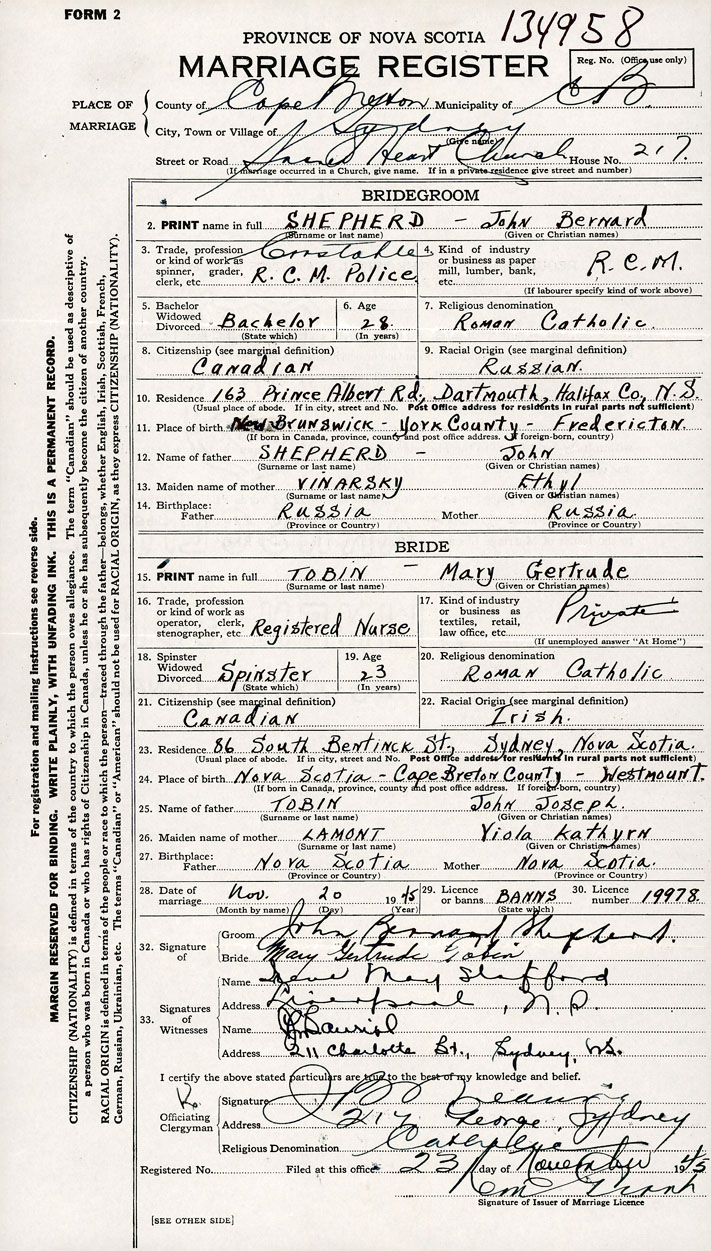 FORM 2
PROVINCE OF NOVA SCOTIA 134958
MARRIAGE REGISTER
Reg. No. (Office use only)
PLACE OF MARRIAGE
County of Cape Breton Municipality of C B.
City, Town or Village of Sydney
(Give name)
Street or Road Sacred Heart Church House No. 217.
(If marriage occurred in a Church, give name. If in a private residence give street and number)
BRIDEGROOM
2. PRINT name in full SHEPHERD - John Bernard
(Surname or last name) (Given or Christian names)
3. Trade, profession or kind of work as spinner, grader, clerk, etc. Constable R. C. M. Police
4. Kind of industry or business as paper mill, lumber, bank, etc. R.C.M.
(If labourer specify kind of work above)
5. Bachelor Widowed Divorced Bachelor
(State which)
6. Age 28.
(In years)
7. Religious denomination Roman Catholic.
8. Citizenship (see marginal definition) Canadian
9. Racial Origin (see marginal definition) Russian.
10. Residence 163 Prince Albert Rd., Dartmouth, Halifax Co., N.S.
(Usual place of abode. If in city, street and No. Post Office address for residents in rural parts not sufficient)
11. Place of birth New Brunswick - York County - Fredericton.
(If born in Canada, province, county and post office address. If foreign-born, country)
12. Name of father SHEPHERD - John
(Surname or last name) (Given or Christian names)
13. Maiden name of mother VINARSKY Ethyl
(Surname or last name) (Given or Christian names)
14. Birthplace: Father Russia Mother Russia.
(Province or Country) (Province or Country)
BRIDE
15. PRINT name in full TOBIN - Mary Gertrude
(Surname or last name) (Given or Christian names)
16. Trade, profession or kind of work as operator, clerk, stenographer, etc. Registered Nurse
17. Kind of industry or business as textiles, retail, law office, etc. Private
(If unemployed answer "At Home")
18. Spinster Widowed Divorced Spinster
(State which)
19. Age 23
(In years)
20. Religious denomination Roman Catholic
21. Citizenship (see marginal definition) Canadian
22. Racial Origin (see marginal definition) Irish.
23. Residence 86 South Bentinck St., Sydney, Nova Scotia.
(Usual place of abode. If in city, street and No. Post Office address for residents in rural parts not sufficient)
24. Place of birth Nova Scotia - Cape Breton County - Westmount.
(If born in Canada, province, county and post office address. If foreign-born, country)
25. Name of father TOBIN John Joseph.
(Surname or last name) (Given or Christian names)
26. Maiden name of mother LAMONT Viola Kathyrn
(Surname or last name) (Given or Christian names)
27. Birthplace: Father Nova Scotia Mother Nova Scotia.
(Province or Country) (Province or Country)
28. Date of marriage Nov. 20 1945
(Month by name) (Day) (Year)
29. Licence or banns BANNS
(State which)
30. Licence number 19978.
32. Signature of
Groom John Bernard Shepherd.
Bride Mary Gertrude Tobin
33. Signatures of Witnesses
Name May Stafford
Address Liverpool, N.S.
Name
Address 211 Charlotte St., Sydney, N.S.
I certify the above stated particulars are true to the best of my knowledge and belief.
Officiating Clergyman
Signature
Address 217 George, Sydney
Religious Denomination Catholic
Registered No. Filed at this office 23 day of November 1945
Signature of Issuer of Marriage Licence
[SEE OTHER SIDE]
For registration and mailing instructions see reverse side.
MARGIN RESERVED FOR BINDING. WRITE PLAINLY, WITH UNFADING INK. THIS IS A PERMANENT RECORD.
CITIZENSHIP (NATIONALITY) is defined in terms of the country to which the person owes allegiance. The term "Canadian" should be used as descriptive of
a person who was born in Canada or who has rights of Citizenship in Canada, unless he or she has subsequently become the citizen of another country.
RACIAL ORIGIN is defined in terms of the people or race to which the person—traced through the father—belongs, whether English, Irish, Scottish, French,
German, Russian, Ukrainian, etc. The terms "Canadian" or "American" should not be used for RACIAL ORIGIN, as they express CITIZENSHIP (NATIONALITY).